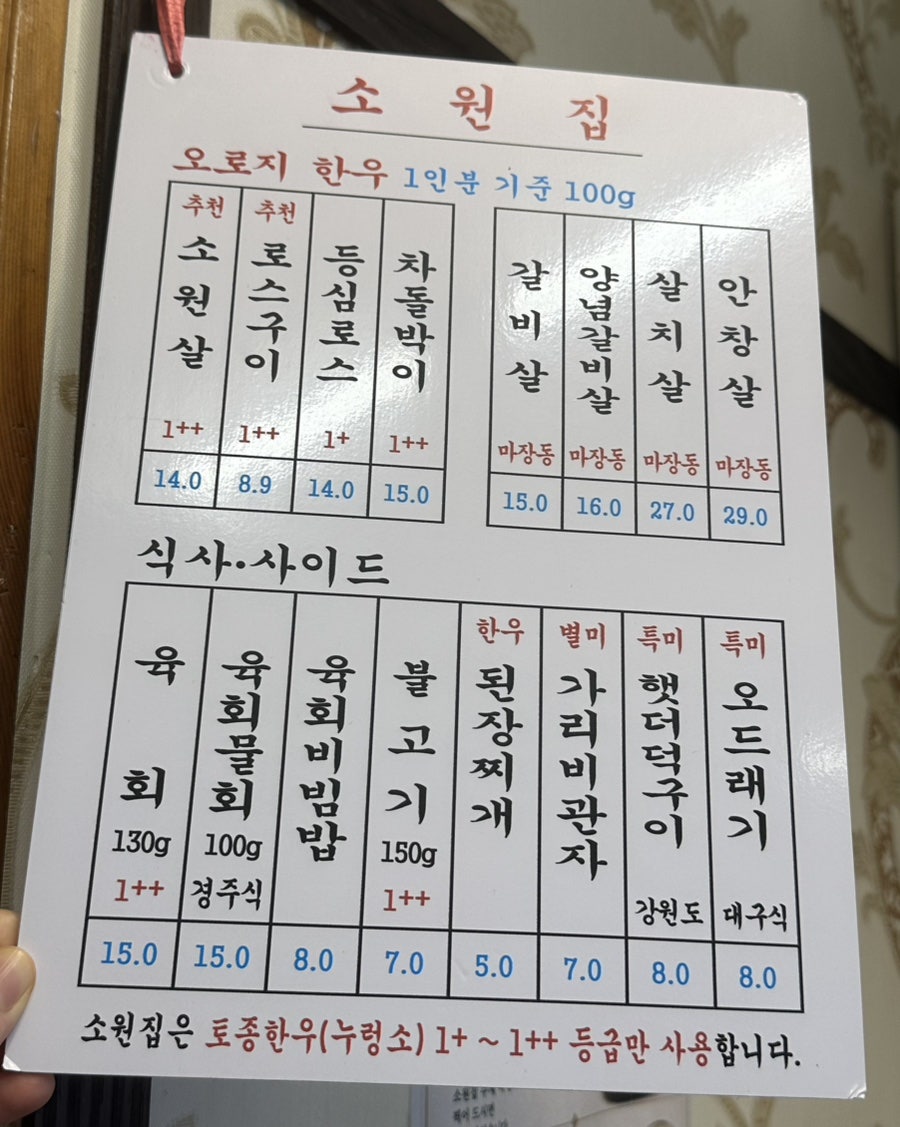 소원집
오로지 한우 1인분 기준 100g
추천 소원살 1++ 14.0
추천 로스구이 1++ 8.9
등심로스 1+ 14.0
차돌박이 1++ 15.0
갈비살 마장동 15.0
양념갈비살 마장동 16.0
살치살 마장동 27.0
안창살 마장동 29.0
식사·사이드
육회 130g 1++ 15.0
육회물회 100g 경주식 15.0
육회비빔밥 8.0
불고기 150g 1++ 7.0
한우 된장찌개 5.0
별미 가리비관자 7.0
특미 햇더덕구이 강원도 8.0
특미 오드래기 대구식 8.0
소원집은 토종한우(누렁소) 1+ ~ 1++ 등급만 사용합니다.